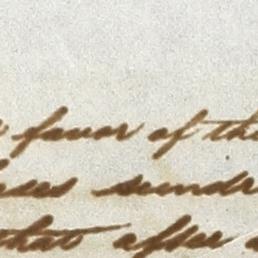 favor of the
sundr
that after